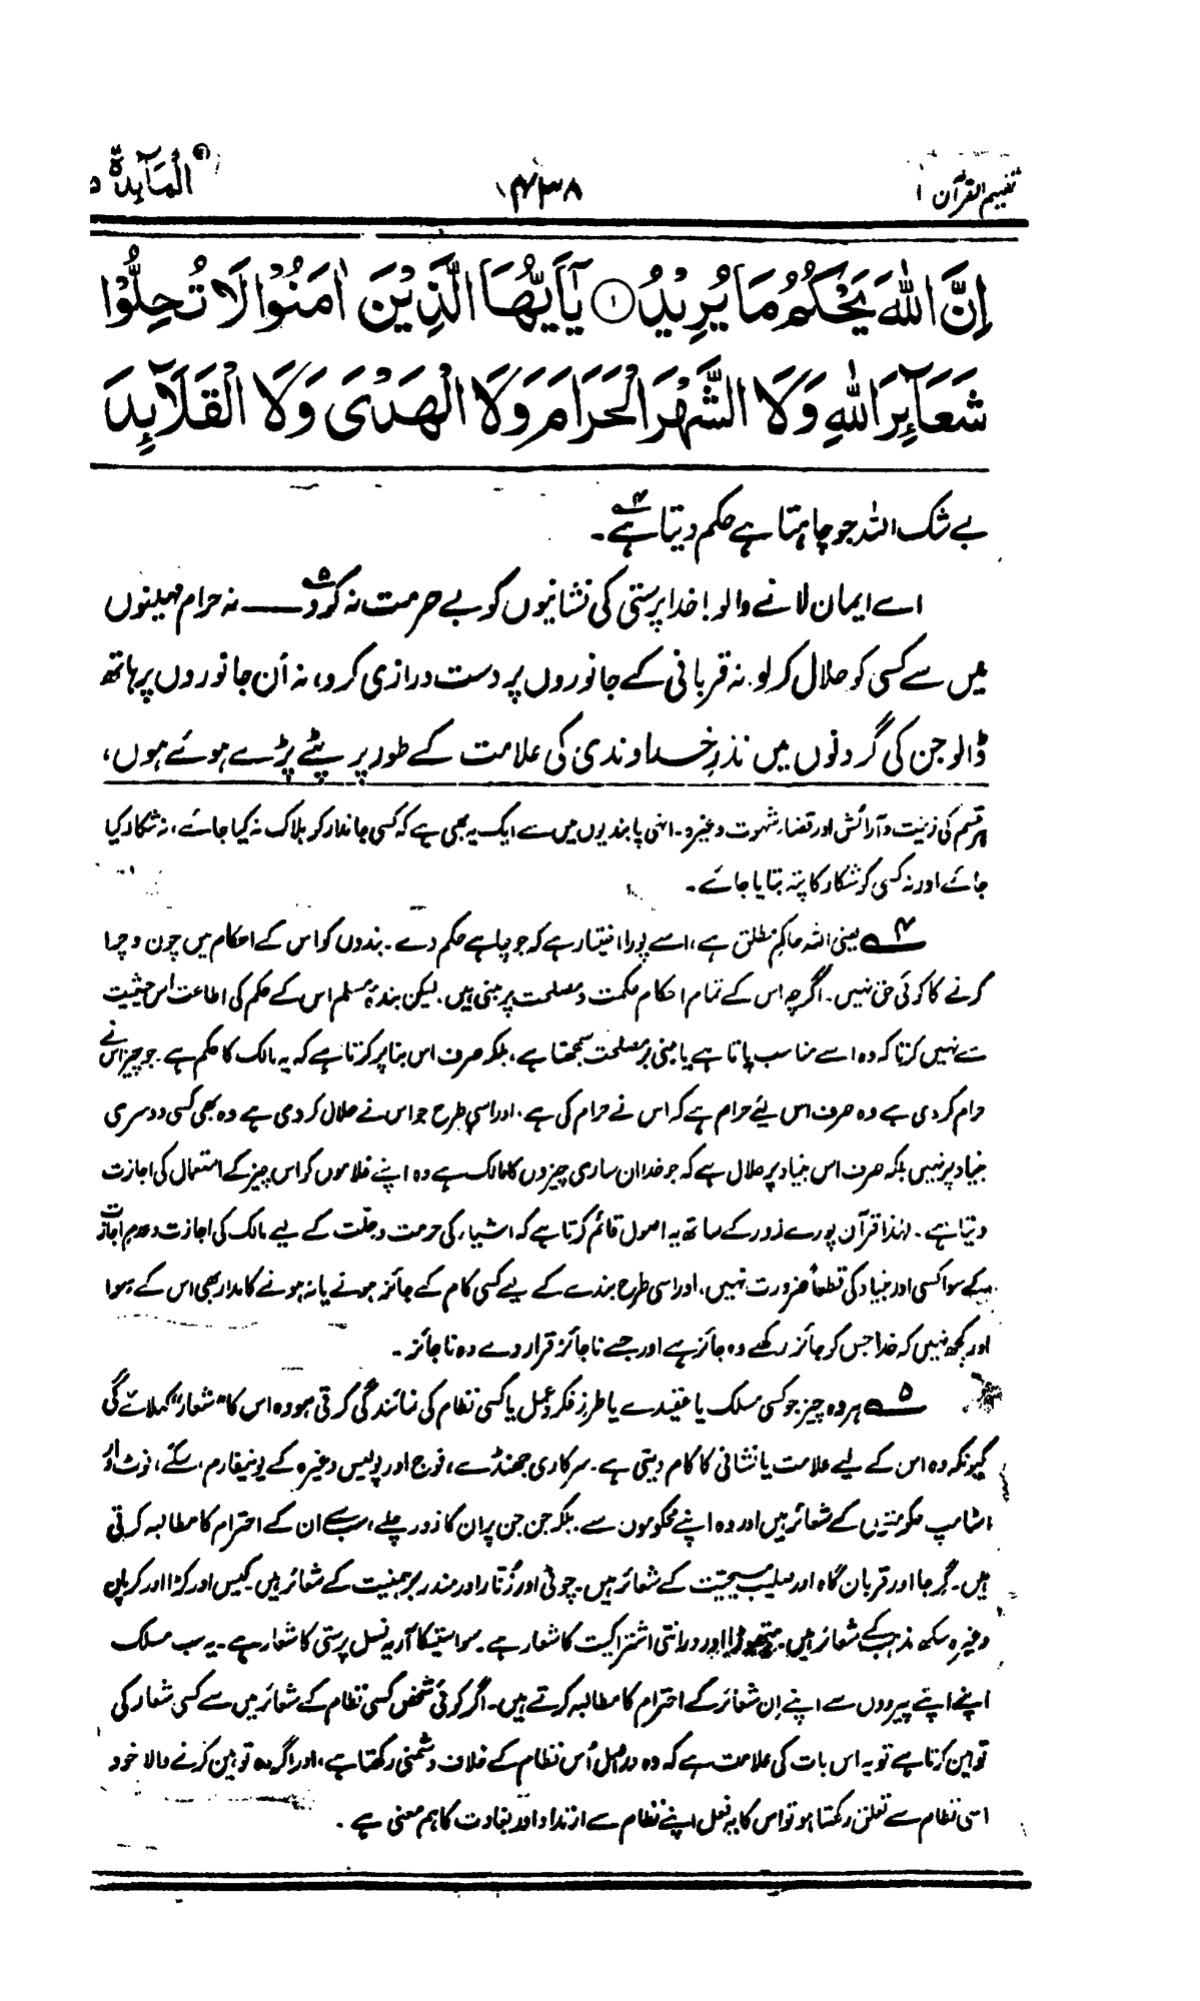 تفہیم القرآن ۱
۴۳۸
المآئدۃ ۵
اِنَّ اللّٰهَ يَحْكُمُ مَا يُرِيْدُ ① يٰۤاَيُّهَا الَّذِيْنَ اٰمَنُوْا لَا تُحِلُّوْا
شَعَآئِرَ اللّٰهِ وَلَا الشَّهْرَ الْحَرَامَ وَلَا الْهَدْىَ وَلَا الْقَلَآئِدَ
بے شک اللہ جو چاہتا ہے حکم دیتا ہے ۴۔
اے ایمان لانے والو! خدا پرستی کی نشانیوں کو بے حرمت نہ کرو ۵ــــ نہ حرام مہینوں
میں سے کسی کو حلال کر لو، نہ قربانی کے جانوروں پر دست درازی کرو، نہ اُن جانوروں پر ہاتھ
ڈالو جن کی گردنوں میں نذرِ خداوندی کی علامت کے طور پر پٹے پڑے ہوئے ہوں،
ہر قسم کی زینت و آرائش اور قضاء شہوت وغیرہ۔ انہی پابندیوں میں سے ایک یہ بھی ہے کہ کسی جاندار کو ہلاک نہ کیا جائے، نہ شکار کیا
جائے اور نہ کسی کو شکار کا پتہ بتایا جائے۔
۴ یعنی اللہ حاکمِ مطلق ہے، اسے پورا اختیار ہے کہ جو چاہے حکم دے۔ بندوں کو اس کے احکام میں چون و چرا
کرنے کا کوئی حق نہیں۔ اگرچہ اس کے تمام احکام حکمت و مصلحت پر مبنی ہیں، لیکن بندۂ مسلم اس کے حکم کی اطاعت اس حیثیت
سے نہیں کرتا کہ وہ اسے مناسب پاتا ہے یا مبنی بر مصلحت سمجھتا ہے، بلکہ صرف اس بنا پر کرتا ہے کہ یہ مالک کا حکم ہے۔ جو چیز اس نے
حرام کر دی ہے وہ صرف اس لیے حرام ہے کہ اس نے حرام کی ہے، اور اسی طرح جو اس نے حلال کر دی ہے وہ بھی کسی دوسری
بنیاد پر نہیں بلکہ صرف اس بنیاد پر حلال ہے کہ جو خدا ان ساری چیزوں کا مالک ہے وہ اپنے غلاموں کو اس چیز کے استعمال کی اجازت
دیتا ہے۔ لہٰذا قرآن پورے زور کے ساتھ یہ اصول قائم کرتا ہے کہ اشیاء کی حرمت و حلّت کے لیے مالک کی اجازت و عدم اجازت
کے سوا کسی اور بنیاد کی قطعاً ضرورت نہیں، اور اسی طرح بندے کے لیے کسی کام کے جائز ہونے یا نہ ہونے کا مدار بھی اس کے سوا
اور کچھ نہیں کہ خدا جس کو جائز رکھے وہ جائز ہے اور جسے ناجائز قرار دے وہ ناجائز۔
۵ ہر وہ چیز جو کسی مسلک یا عقیدے یا طرزِ فکر و عمل یا کسی نظام کی نمائندگی کرتی ہو وہ اس کا ”شعار“ کہلائے گی
کیونکہ وہ اس کے لیے علامت یا نشانی کا کام دیتی ہے۔ سرکاری جھنڈے، فوج اور پولیس وغیرہ کے یونیفارم، سکّے، نوٹ اور
اسٹامپ حکومتوں کے شعائر ہیں اور وہ اپنے محکوموں سے، بلکہ جن جن پر ان کا زور چلے، سب سے ان کے احترام کا مطالبہ کرتی
ہیں۔ گرجا اور قربان گاہ اور صلیب مسیحیّت کے شعائر ہیں۔ چوٹی اور زُنّار اور مندر برہمنیت کے شعائر ہیں۔ کیس اور کڑا اور کرپان
وغیرہ سکھ مذہب کے شعائر ہیں۔ ہتھوڑا اور درانتی اشتراکیت کا شعار ہے۔ سواستیکا آریہ نسل پرستی کا شعار ہے۔ یہ سب مسلک
اپنے اپنے پیرووں سے اپنے اِن شعائر کے احترام کا مطالبہ کرتے ہیں۔ اگر کوئی شخص کسی نظام کے شعائر میں سے کسی شعار کی
توہین کرتا ہے تو یہ اس بات کی علامت ہے کہ وہ دراصل اُس نظام کے خلاف دشمنی رکھتا ہے، اور اگر وہ توہین کرنے والا خود
اسی نظام سے تعلق رکھتا ہو تو اس کا یہ فعل اپنے نظام سے ارتداد اور بغاوت کا ہم معنی ہے۔